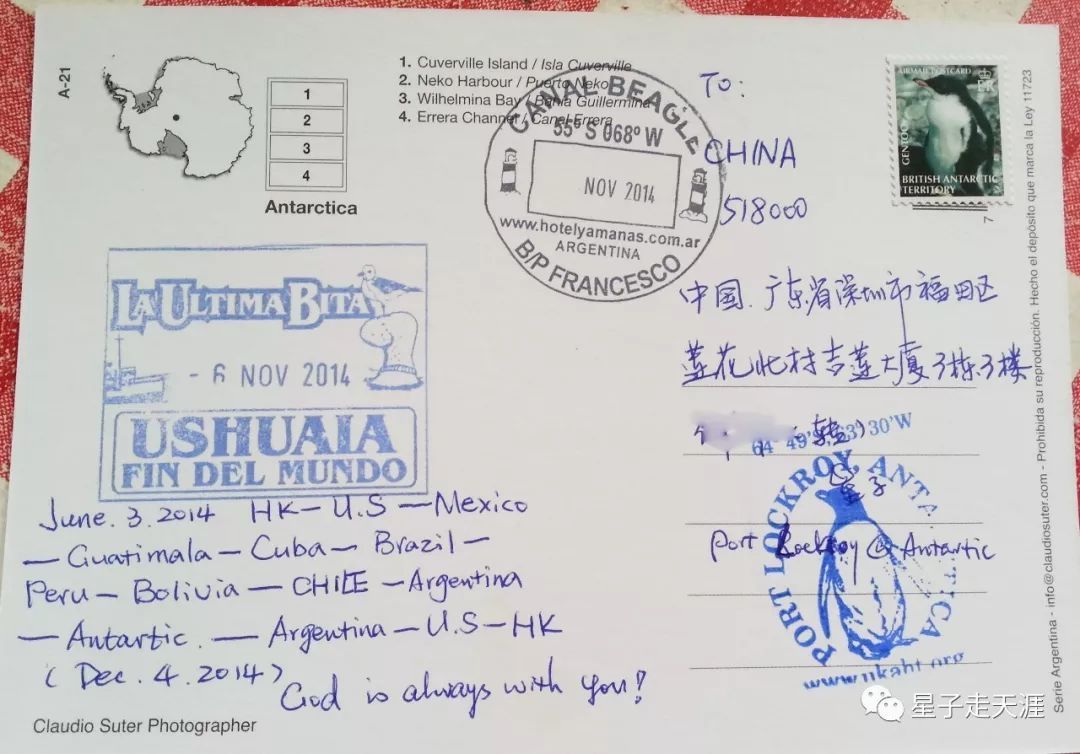 A-21
1
2
3
4
Antarctica
1. Cuverville Island / Isla Cuverville
2. Neko Harbour / Puerto Neko
3. Wilhelmina Bay / Bahía Guillermina
4. Errera Channel / Canal Errera
CANAL BEAGLE
55º S 068º W
NOV 2014
www.hotelyamanas.com.ar
ARGENTINA
B/P FRANCESCO
AIRMAIL POSTCARD
GENTOO
BRITISH ANTARCTIC
TERRITORY
7
TO:
CHINA
518000
中国.广东省深圳市福田区
莲花北村吉莲大厦3栋3楼
转)
星子
64° 49'S 63° 30'W
PORT LOCKROY, ANTARCTICA
www.ukaht.org
Port Lockroy @ Antartic
LA ULTIMA BITA
- 6 NOV 2014
USHUAIA
FIN DEL MUNDO
June. 3. 2014 HK - U.S - Mexico
- Guatimala - Cuba - Brazil -
Peru - Bolivia - CHILE - Argentina
- Antartic. - Argentina - U.S - HK
(Dec. 4. 2014)
God is always with you!
Claudio Suter Photographer
Serie Argentina - info@claudiosuter.com - Prohibida su reproducción. Hecho el depósito que marca la Ley 11723
星子走天涯